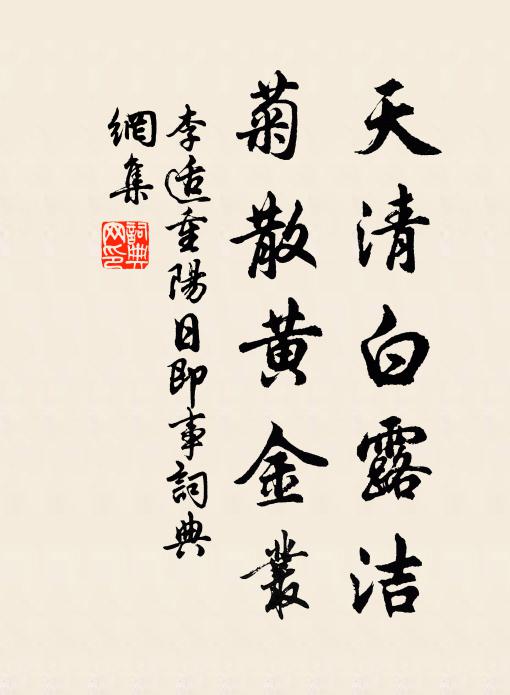 天清白露洁
菊散黄金叢
李适重陽日即事詞典
網集
詞典
网印